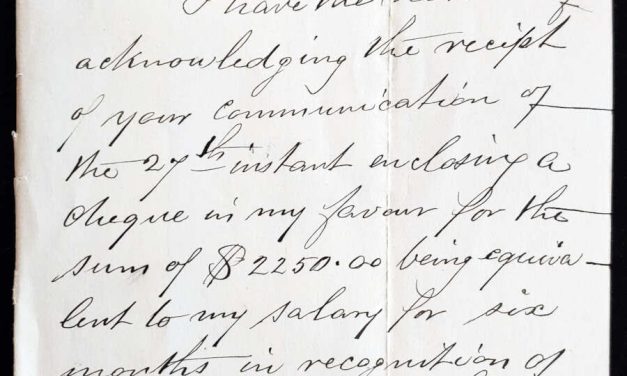 I have the honor of
acknowledging the recipt
of your communication of
the 27th instant enclosing a
cheque in my favour for the
sum of $2250.00 being equiva-
lent to my salary for six
months in recognition of